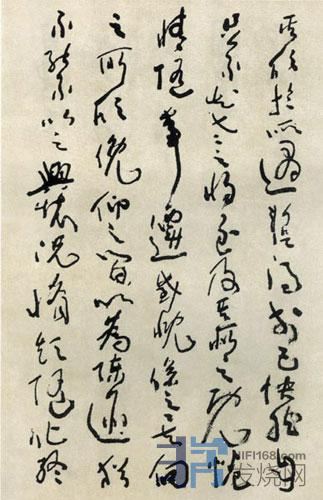 其欣於所遇暫得於己快然自
足不知老之將至及其所之既惓
情隨事遷感慨係之矣向
之所欣俛仰之間以為陳迹猶
不能不以之興懷況脩短隨化終
HIFI168.com
发烧网